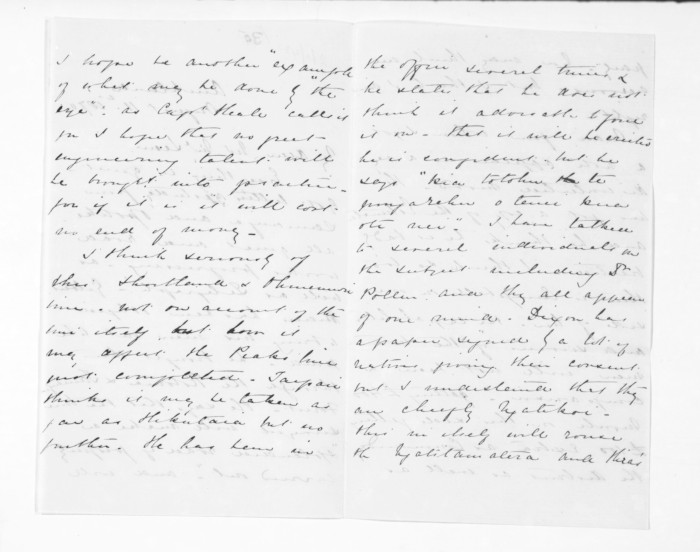 36
I hope be another "example
of what may be done by "the
eye" as Capt Heale calls it
for I hope that no great
engineering talent will
be brought into practice -
for if it is it will cost
no end of money -
I think seriously of
this Shortland & Ohinemuri
line - not on account of the
line itself but how it
may affect the Peaks line
just completed - Taipari
thinks it may be taken as
far as Hikutaia but no
further. He has been in
the office several times &
he states that he does not
think it advisable to force
it on - that it will be
he is confident but he
says "kia te
o tenei
" I have talked
to several individuals on
the subject including Dr
Pollen and they all appear
of one mind. Dixon has
a paper signed by a lot of
natives giving their consent
but I understand that they
are chiefly Ngatikoi -
this in itself will rouse
the Ngatitamatera and